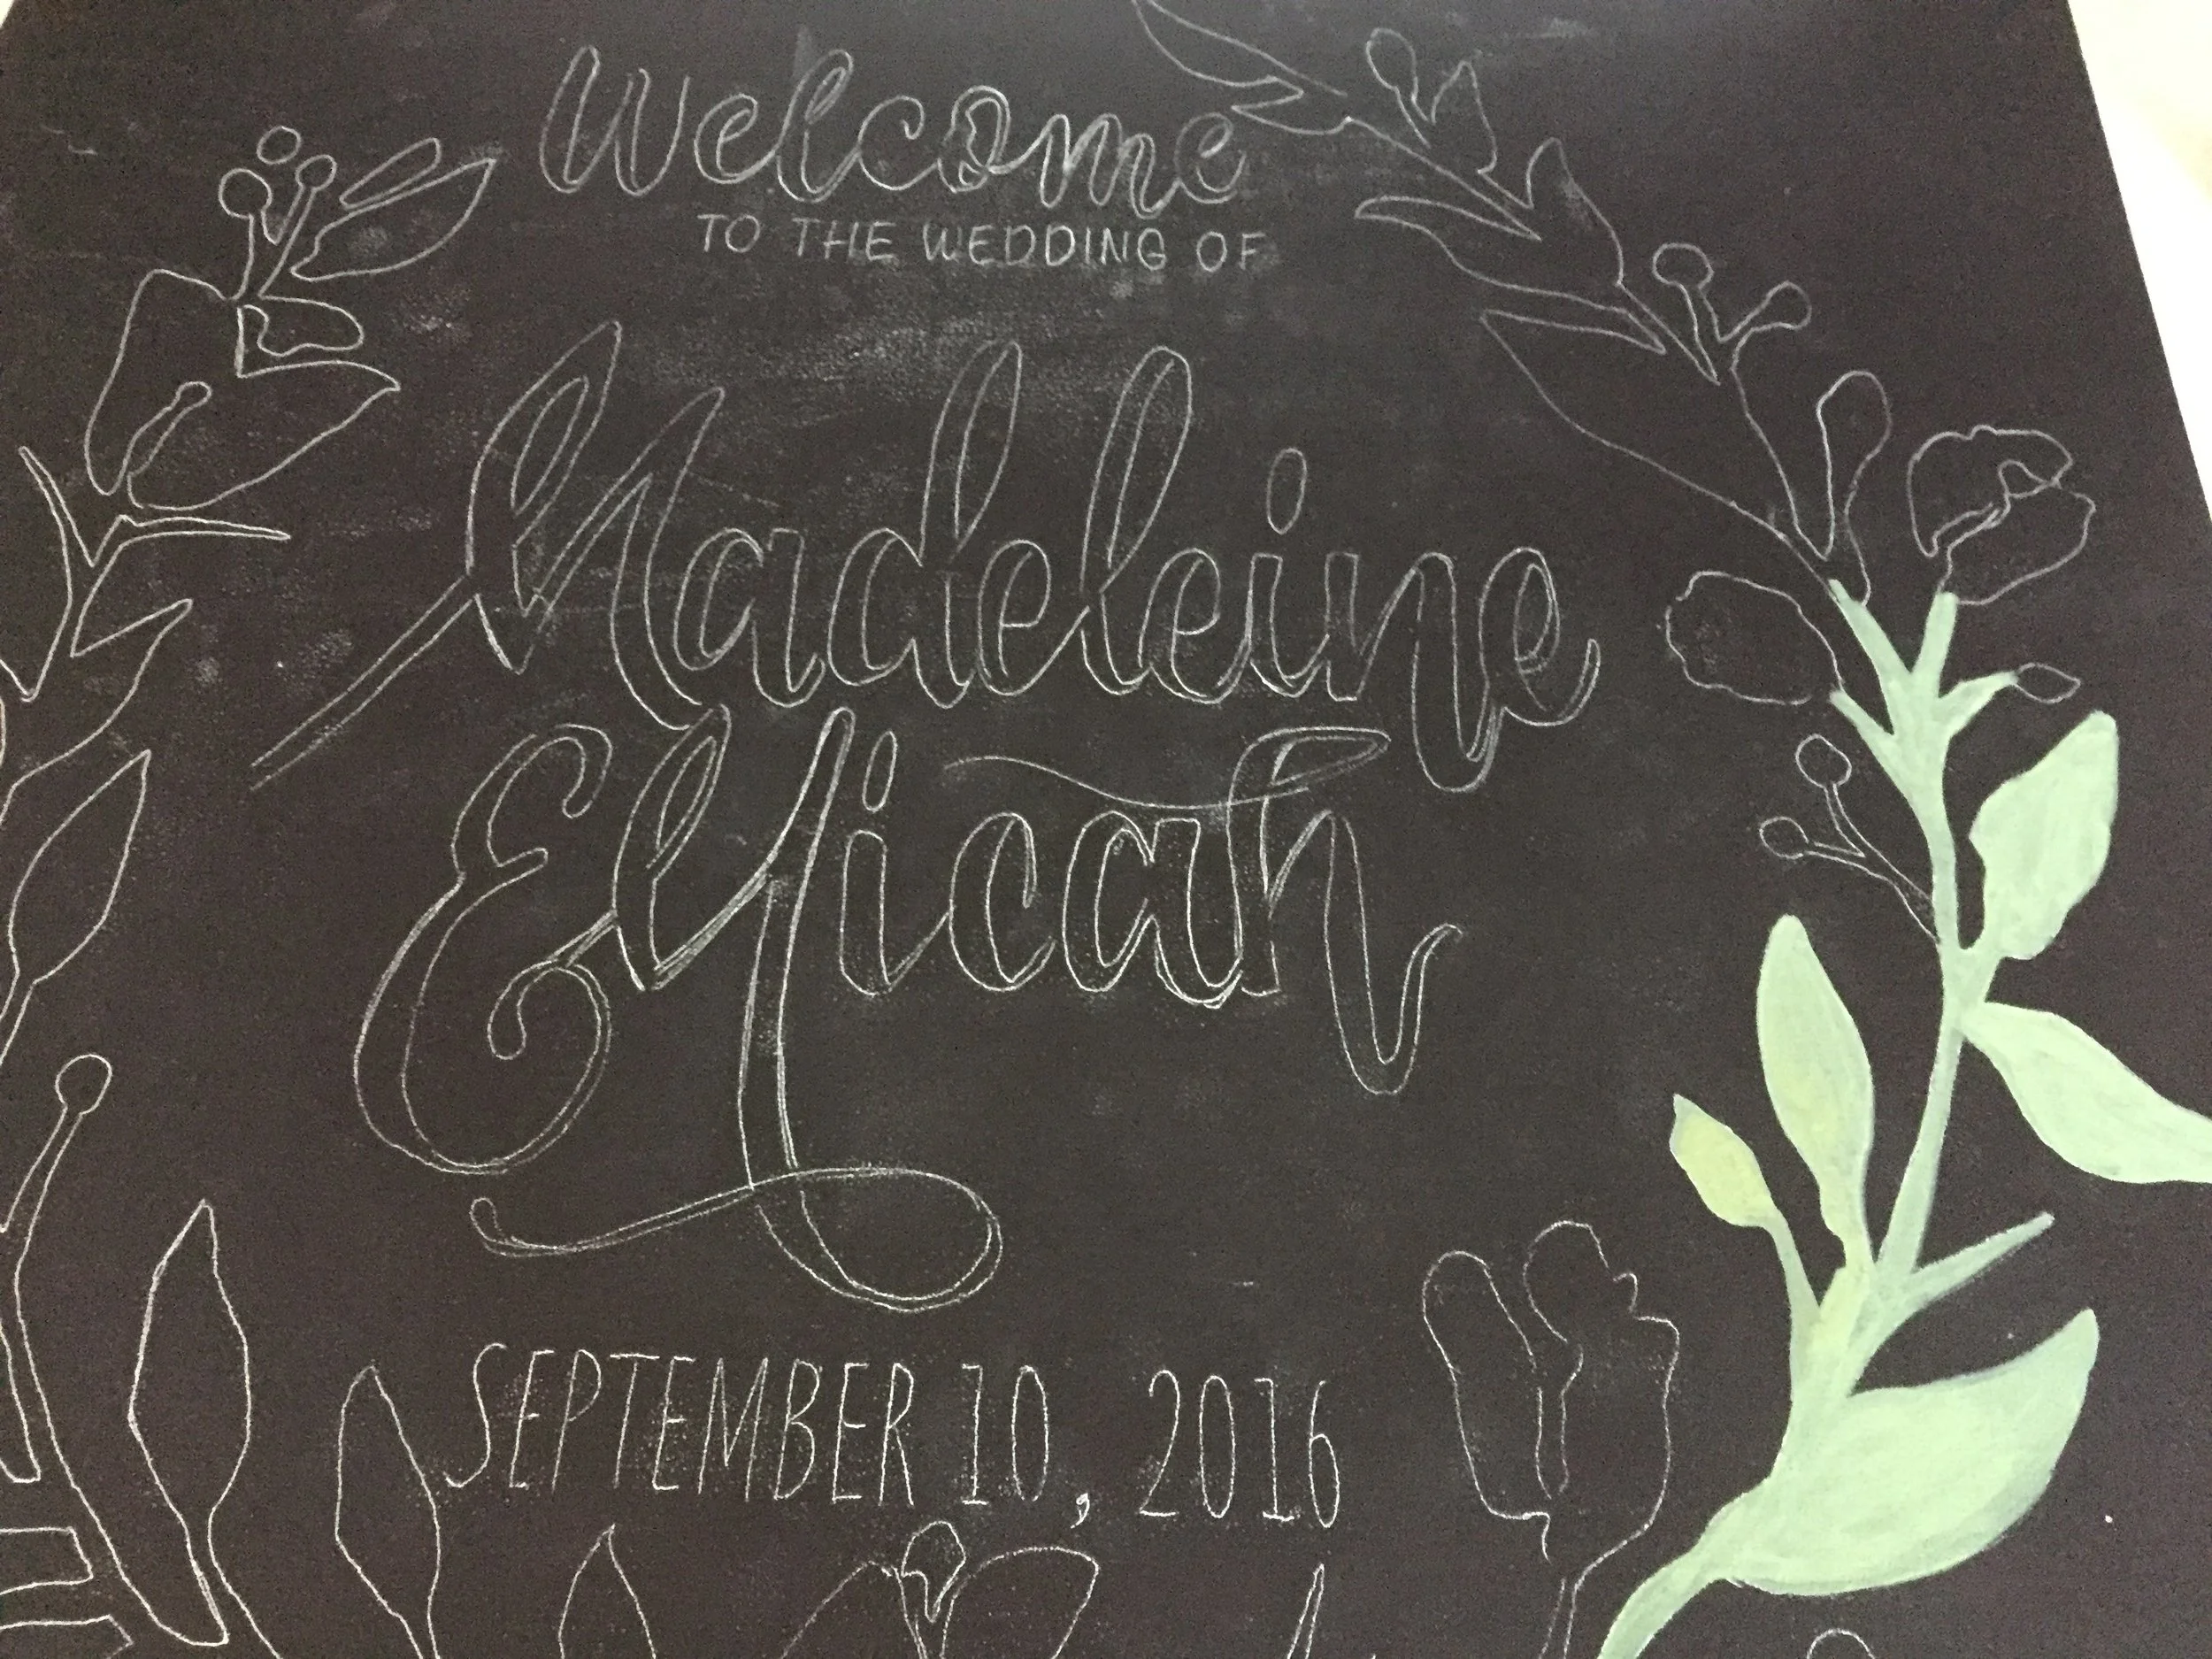 Welcome
TO THE WEDDING OF
Madeleine
& Micah
SEPTEMBER 10, 2016